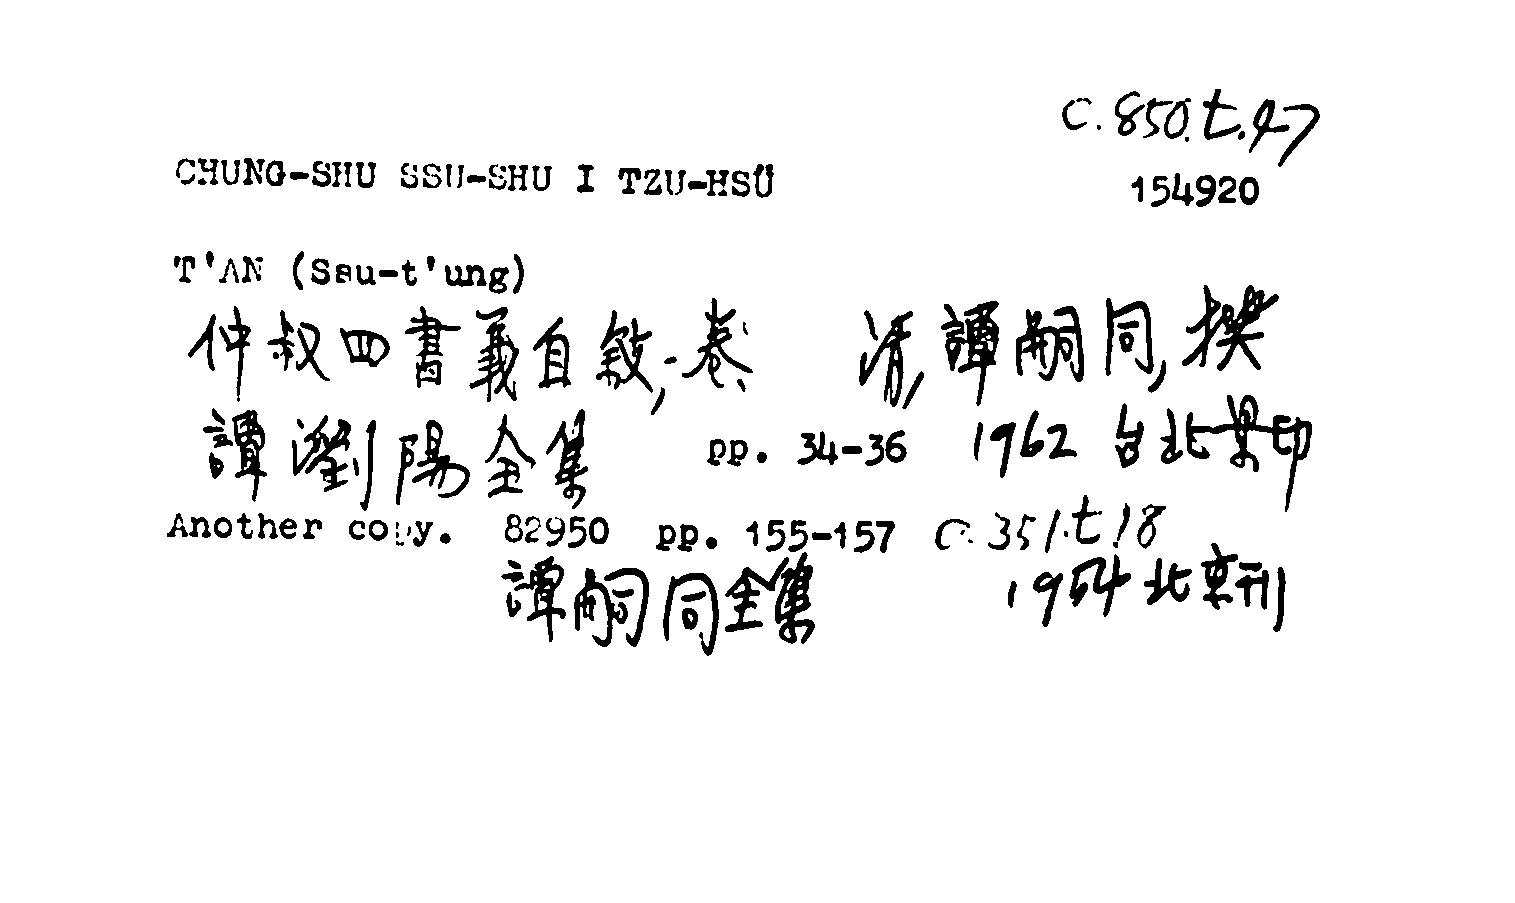 C.850.t.47
CHUNG-SHU SSU-SHU I TZU-HSÜ
154920
T'AN (Ssu-t'ung)
仲叔四書義自敍,一卷、 清,譚嗣同,撰
譚瀏陽全集 pp. 34-36 1962 台北景印
Another copy. 82950 pp. 155-157 C.351.t.18
譚嗣同全集 1954 北京刊